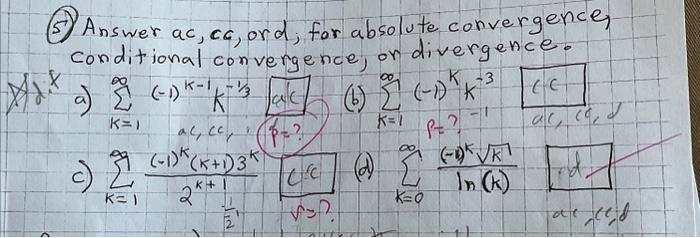 5) Answer ac, cc, or d, for absolute convergence,
conditional convergence, or divergence.
a) ∞ Σ K=1 (-1)^K-1 K^-1/3 ac (b) ∞ Σ K=1 (-1)^K K^-3 cc
ac, cc, p=? p=? -1 ac, cc, d
c) ∞ Σ K=1 (-1)^K (K+1) 3^K / 2^K+1 cc (d) ∞ Σ K=0 (-1)^K √K / ln(K) d
1/2 r=? ac, cc, d